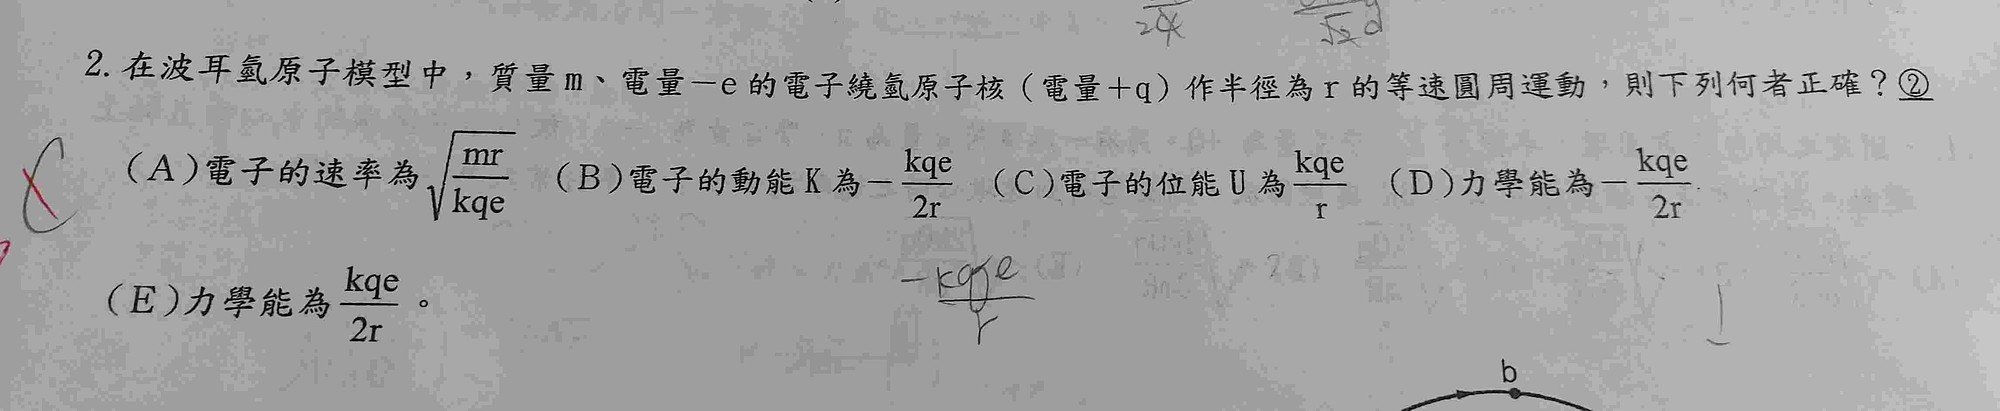 2α
√2 d
2. 在波耳氫原子模型中，質量 m、電量－e 的電子繞氫原子核（電量＋q）作半徑為 r 的等速圓周運動，則下列何者正確？②
C (A)電子的速率為√(mr/kqe) (B)電子的動能 K 為－kqe/2r (C)電子的位能 U 為 kqe/r (D)力學能為－kqe/2r
(E)力學能為 kqe/2r。
-kqe/r
b